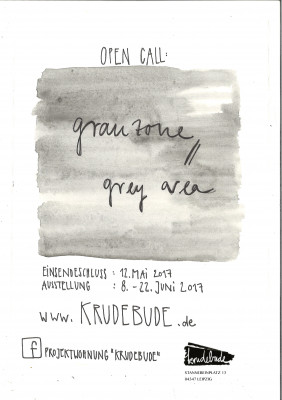 OPEN CALL:
grauzone //
grey area
EINSENDESCHLUSS : 12. MAI 2017
AUSSTELLUNG : 8. - 22. JUNI 2017
www. KRUDEBUDE .de
f PROJEKTWOHNUNG "KRUDEBUDE"
krudebude
STANNEBEINPLATZ 13
04347 LEIPZIG